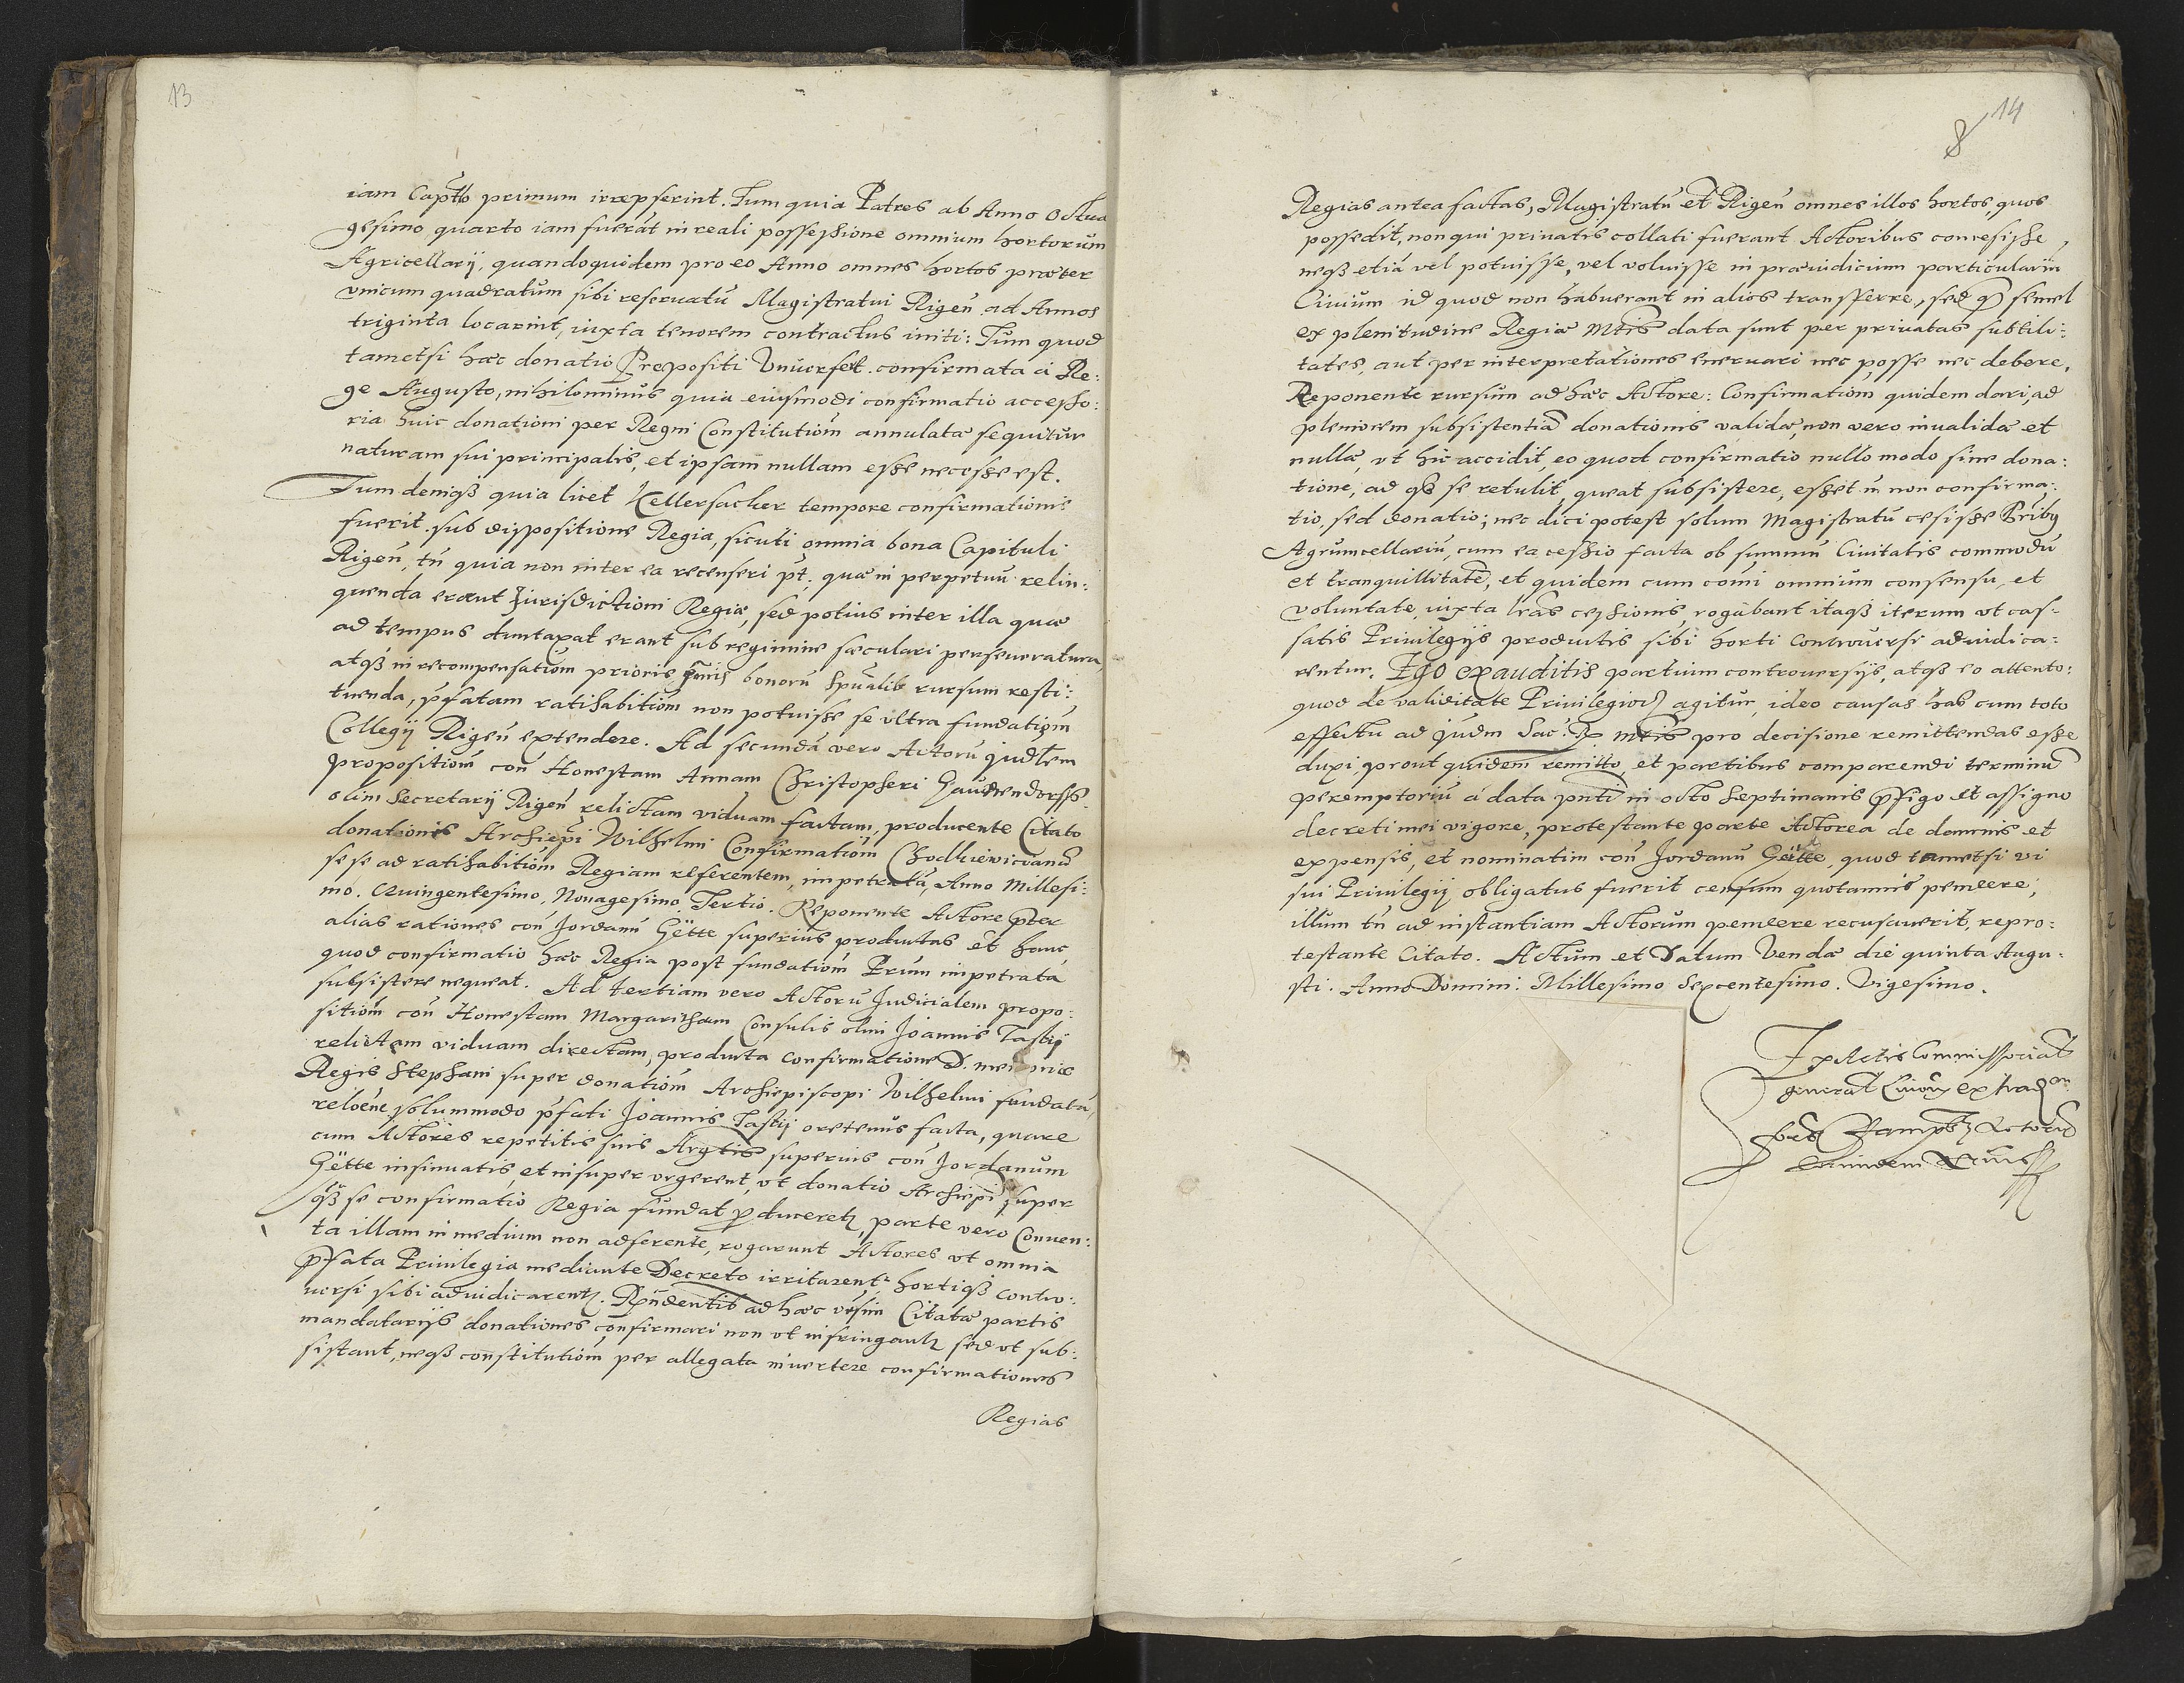 13
iam Captło primum irrepserint. Tum quia Patres ab Anno Octua
gesimo quarto iam fuerāt in reali possessione omnium hortorum
Agricellarij, quandoquidem pro eo Anno omnes hortos præter
vnicum quadratum sibi reseruatū Magistratui Rigeñ ad Annos
triginta locarint, iuxta tenorem contractus initi: Tum quod
tametsi hæc donatio Prepositi Vniuersĩt. confirmata a Re:
ge Augusto, nihilominus quia eiusmodi confirmatio accesso:
ria huic donationi per Regni Constitutiom̄ annulatæ sequitur
naturam sui principalis, et ipsam nullam esse necesse est.
Tum deniqȝ quia licet Kellersacker tempore confirmationis
fuerit sub dispositione Regia, sicuti omnia bona Capituli
Rigeñ, tñ quia non inter ea recenseri pt̄. quæ in perpetuū relin:
quenda erant Jurisdictioni Regiæ, sed potius inter illa quæ
ad tempus duntaxat erant sub regimine sæculari perseueratura
atqȝ in recompensatiom̄ prioris bonorū Spūalib rursum resti:
tuenda, p̄fatam ratihabitiom̄ non potuisse se vltra fundatiom̄
Collegij Rigeñ extendere. Ad secundā vero Actorū Judlem
propositiom̄ con̄ Honestam Annam Christopheri Gaudendorffs
olim Secretarij Rigeñ relictam viduam factam, producente Citato
donationis Archiepi Wilhelmi Confirmatiom̄ Chodkiewicianū
se se ad ratihabitiom̄ Regiam referentem, impetratā, Anno Millesi:
mo. Quingentesimo. Nonagesimo Tertio. Reponente Actore p̄ter
alias rationes con̄ Jordanū Gëtte superius productas et hanc
quod confirmatio hæc Regia post fundatiom̄ Prūm impetrata
subsistere nequeat. Ad tertiam vero Actorū Judicialem propo:
sitiom̄ con̄ Honestam Margaritham Consulis olim Joannis Tastij
relictam viduam directam, producta confirmatione D. memoriæ
Regis Stephani super donatiom̄ Archiepiscopi Wilhelmi fundatā,
reloēne solummodo p̄fati Joannis Tastij oretenus facta, quare
cum Actores repetitis suis Argtis superius con̄ Jordanum
Gëtte insinuatis, et insuper vrgerent, vt donatio Archiepi super
qȝ se confirmatio Regia fundat p̱duceretȝ, parte vero Conuen:
ta illam in medium non adferente, rogarunt Actores vt omnia
p̄fata Priuilegia mediante Decreto irritarentr hortiqȝ contro:
uersi sibi adiudicarentȝ. Rñdentib ad hæc vrsim Citatæ partis
mandatarijs donationes confirmari non vt infringantȝ sed vt sub:
sistant, neqȝ constitutiom̄ per allegata inuertere confirmationes
Regias
14
8
Regias antea factas, Magistratū et Rigeñ omnes illos hortos, quos
possedit, non qui priuatis collati fuerant Actoribus concesisse,
neqȝ etiā vel potuisse, vel voluisse in præiudicium particulariū
Ciuium id quod non habuerant in alios transferre, sed semel
ex plenitudine Regiæ Mtis data sunt per priuatas subtili:
tates, aut per interpretationes eneruari nec posse nec debere.
Reponente rursum ad hæc Actore: Confirmatiom̄ quidem dari, ad
pleniorem subsistentiā donationis validæ, non vero inualidæ et
nullæ, vt hic accidit, eo quod confirmatio nullo modo sine dona:
tione, ad qȝ se retulit, queat subsistere, esset ñ non confirma:
tio, sed donatio; nec dici potest solum Magistratū cesisse Prībȝ
Agrumcellariū, cum ea cessio facta ob summū Ciuitatis commodū
et tranquillitatē, et quidem cum com̄i omnium consensu, et
voluntate, iuxta lr̄as cessionis, rogabant itaqȝ iterum vt cas-
satis Priuilegijs productis sibi horti Controuersi adiudica:
rentur. Ego exauditis partium controuersijs, atqȝ eo attento:
quod de validitate Priuilegiorȝ agitur, ideo causas has cum toto
effectu ad Judm̄ Sac: R. Mtis pro decisione remittendas esse
duxi, prout quidem remitto, et partibus comparendi terminū
peremptoriū a data pñti in octo Septimanis p̄figo et assigno
decreti mei vigore, protestante parte Actorea de damnis et
expensis, et nominatim con̄ Jordanū Gëtte, quod tametsi vi
sui Priuilegij obligatus fuerit censum quotannis pendere,
illum tñ ad instantiam Actorum pendere recusauerit, repro:
testante Citato. Actum et Datum Vendæ die quinta Augu:
sti. Anno Domini: Millesimo Sexcentesimo. Vigesimo.
Ex Actis Commissoriat
general Liuon extrad